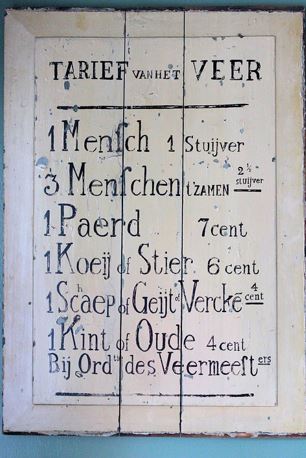 TARIEF VAN HET VEER
1 Menſch 1 Stuijver
3 Menſchen t'ZAMEN 2 ½ stuijver
1 Paerd 7 cent
1 Koeij of Stier 6 cent
1 Schaep of Geijt of Vercke 4 cent
1 Kint of Oude 4 cent
Bij Ordre des Veermeeſters